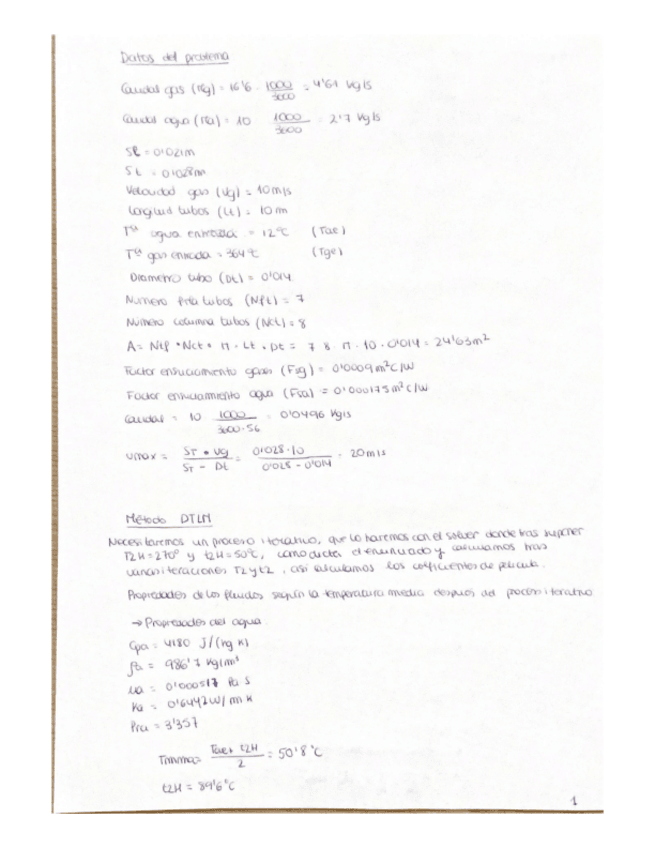 Datos del problema
Caudal gas (mg) = 16'6 · 1000/3600 = 4'61 kg/s
Caudal agua (ma) = 10 1000/3600 = 2'7 kg/s
Sl = 0'021m
St = 0'028m
Velocidad gas (Vg) = 10m/s
Longitud tubos (Lt) = 10m
Tª agua entrada = 12ºC (Tae)
Tª gas entrada = 364ºC (Tge)
Diametro tubo (Dt) = 0'014
Numero fila tubos (Nft) = 7
Número columna tubos (Nct) = 8
A = Ntf · Nct · π · Lt · Dt = 7 8 π · 10 · 0'014 = 24'63m²
Factor ensuciamiento gases (Fsg) = 0'0009m²C/W
Factor ensuciamiento agua (Fsa) = 0'000175m²C/W
Caudal = 10 1000/3600·56 = 0'0496 kg/s
Vmax = ST · Vg / ST - Dt = 0'028 · 10 / 0'028 - 0'014 = 20m/s
Método DTLM
Necesitaremos un proceso iterativo, que lo haremos con el solver donde tras suponer
T2H = 270º y t2H = 50ºC, como dicta el enunciado y calculamos tras
varias iteraciones T2 y t2, así calculamos los coeficientes de película.
Propiedades de los fluidos según la temperatura media despues del proceso iterativo
→ Propiedades del agua
Cpa = 4180 J/(kg K)
ρa = 986'7 kg/m³
μa = 0'000517 Pa s
Ka = 0'6442 W/m K
Pra = 3'357
Tmma = Tae + t2H / 2 = 50'8ºC
t2H = 89'6ºC
1